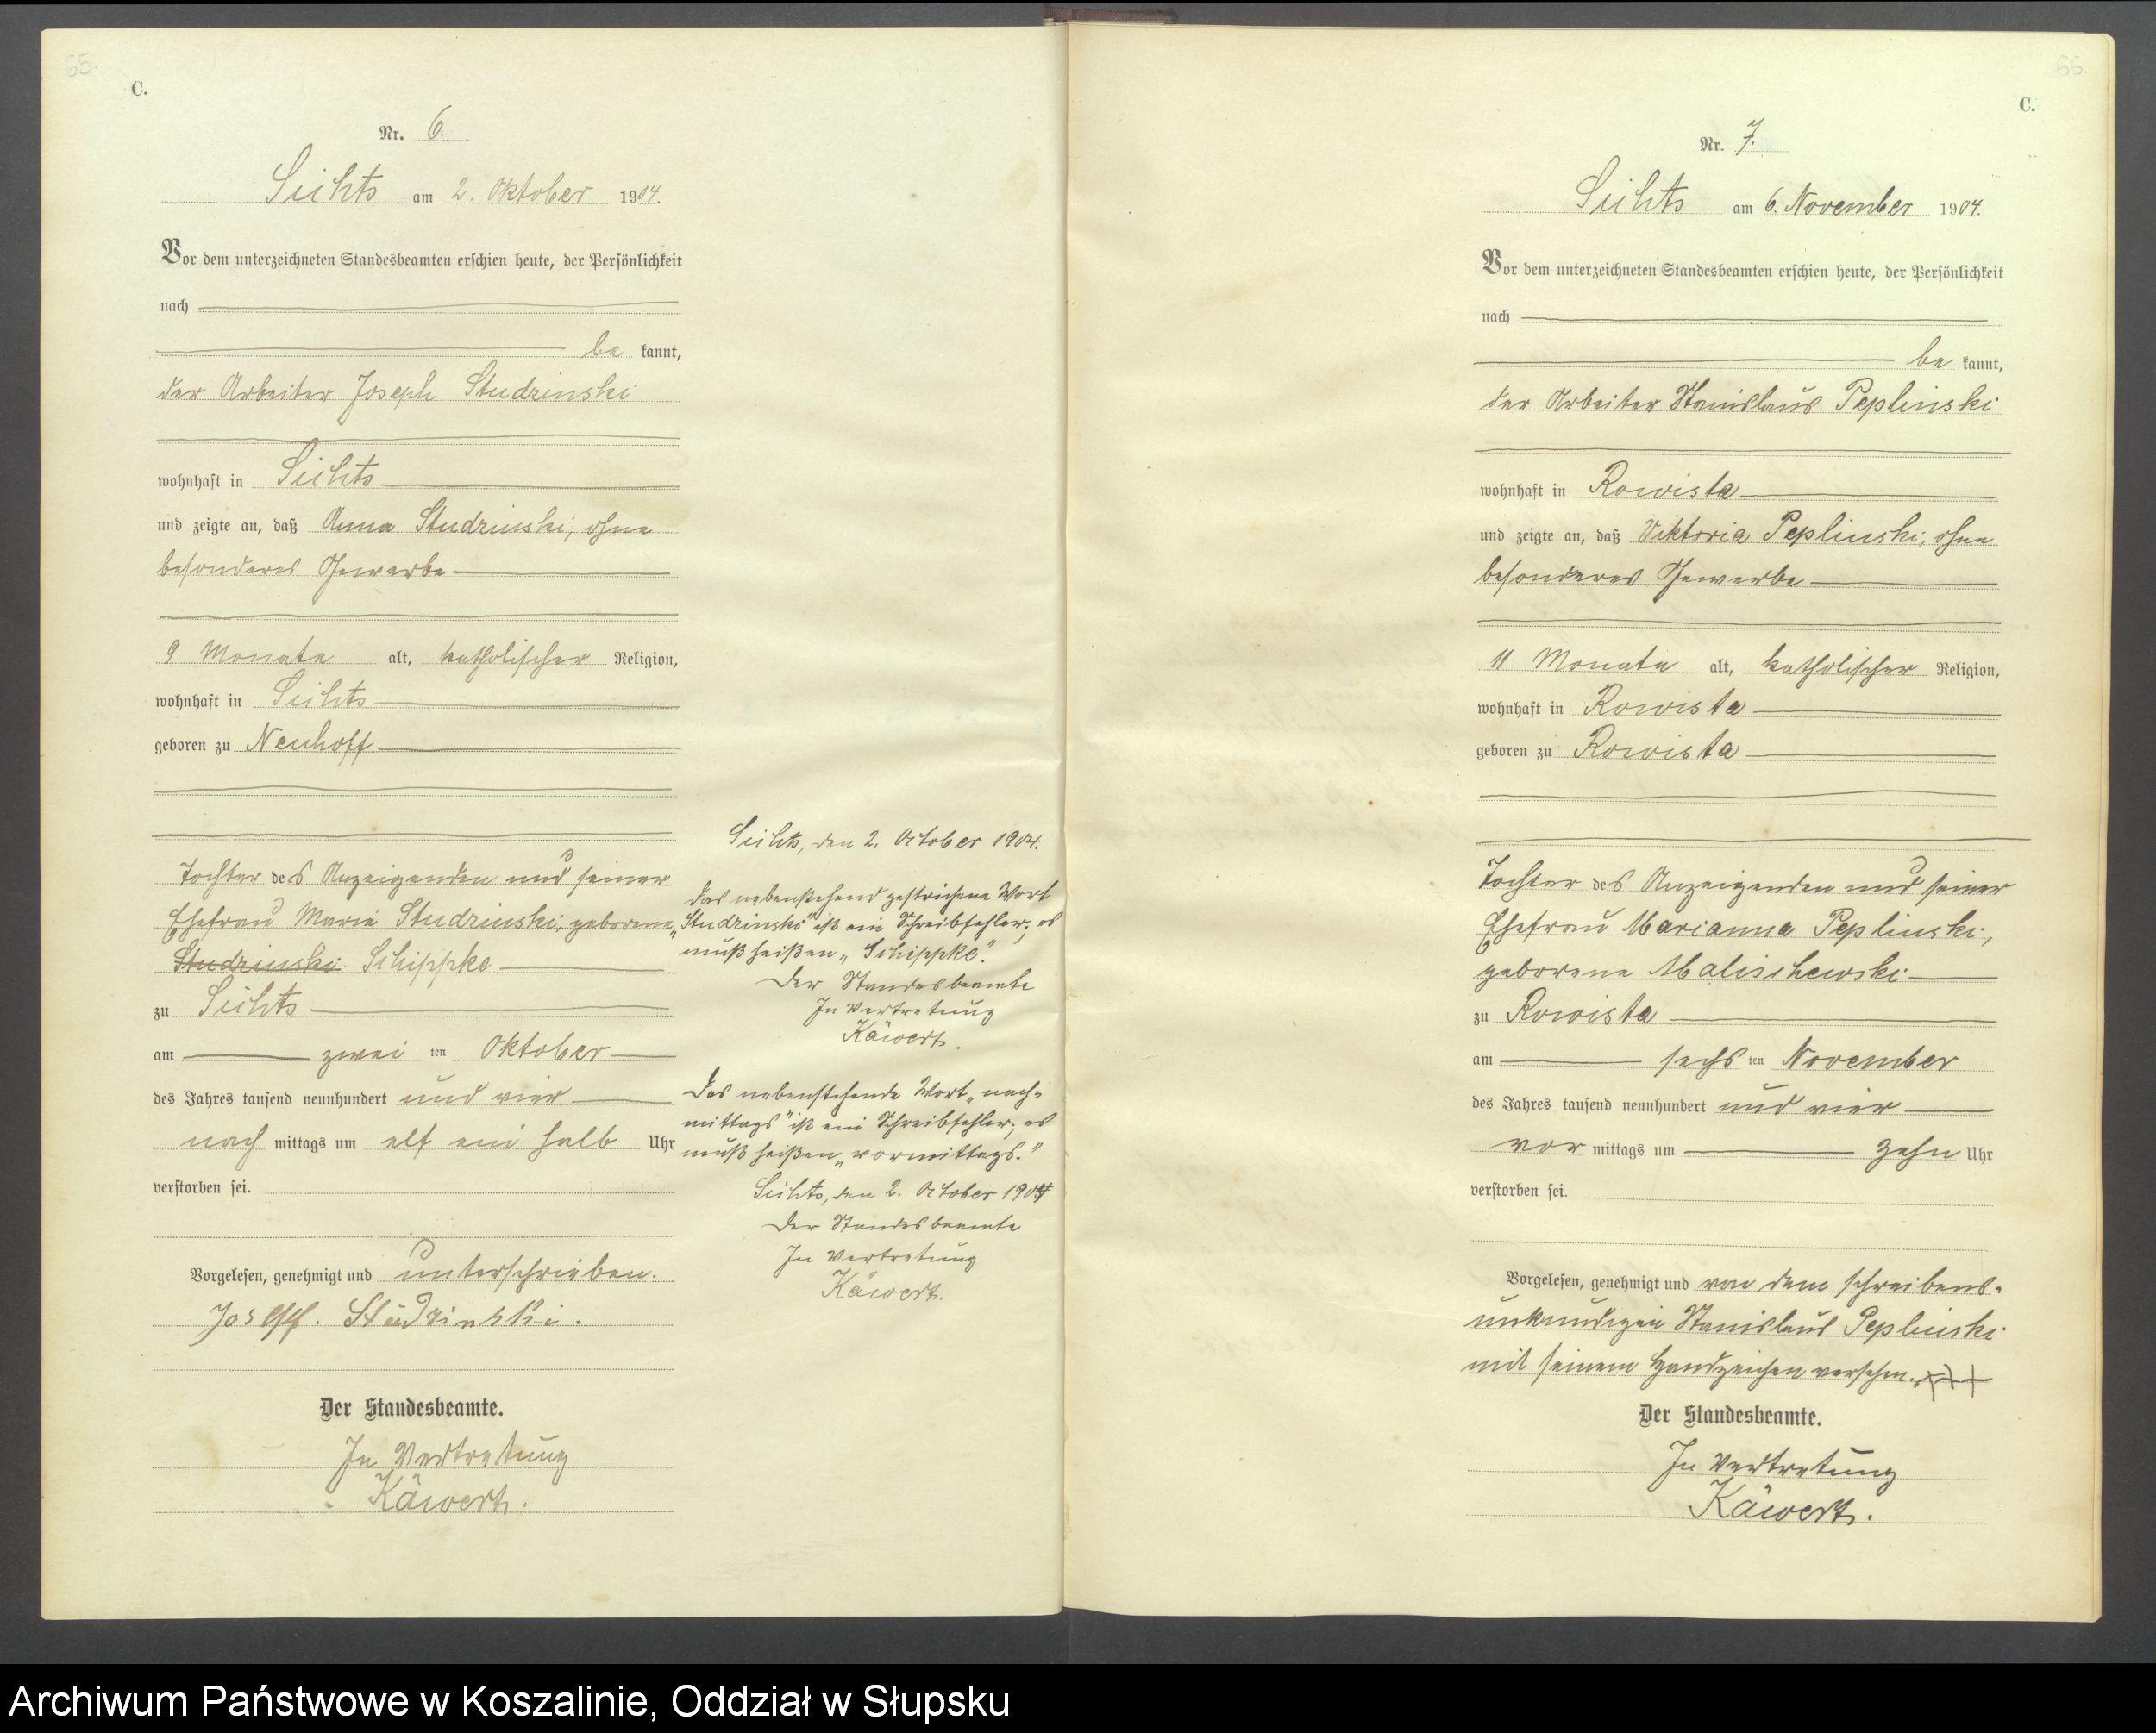 65.
C.
Nr. 6.
Sichts am 2. Oktober 1904.
Vor dem unterzeichneten Standesbeamten erschien heute, der Persönlichkeit
nach
be kannt,
der Arbeiter Joseph Studzinski
wohnhaft in Sichts
und zeigte an, daß Anna Studzinski, ohne
besonderes Gewerbe
9 Monate alt, katholischer Religion,
wohnhaft in Sichts
geboren zu Neuhoff
Tochter des Anzeigenden und seiner
Ehefrau Maria Studzinski, geborene
Studzinski Schippke
zu Sichts
am zwei ten Oktober
des Jahres tausend neunhundert und vier
nach mittags um elf ein halb Uhr
verstorben sei.
Vorgelesen, genehmigt und unterschrieben.
Joseph. Studzinski.
Der Standesbeamte.
In Vertretung
Käwert.
Sichts, den 2. October 1904.
Das nebenstehend gestrichene Wort
„Studzinski" ist ein Schreibfehler; es
muß heißen „Schippke".
Der Standesbeamte
In Vertretung
Käwert.
Das nebenstehende Wort „nach-
mittags" ist ein Schreibfehler; es
muß heißen „vormittags."
Sichts, den 2. October 1904
Der Standesbeamte
In Vertretung
Käwert.
66.
C.
Nr. 7.
Sichts am 6. November 1904.
Vor dem unterzeichneten Standesbeamten erschien heute, der Persönlichkeit
nach
be kannt,
der Arbeiter Stanislaus Peplinski
wohnhaft in Rowista
und zeigte an, daß Viktoria Peplinski, ohne
besonderes Gewerbe
11 Monate alt, katholischer Religion,
wohnhaft in Rowista
geboren zu Rowista
Tochter des Anzeigenden und seiner
Ehefrau Marianna Peplinski,
geborene Malischewski
zu Rowista
am sechs ten November
des Jahres tausend neunhundert und vier
vor mittags um zehn Uhr
verstorben sei.
Vorgelesen, genehmigt und von dem schreibens-
unkundigen Stanislaus Peplinski
mit seinem Handzeichen versehen. +++
Der Standesbeamte.
In Vertretung
Käwert.
Archiwum Państwowe w Koszalinie, Oddział w Słupsku